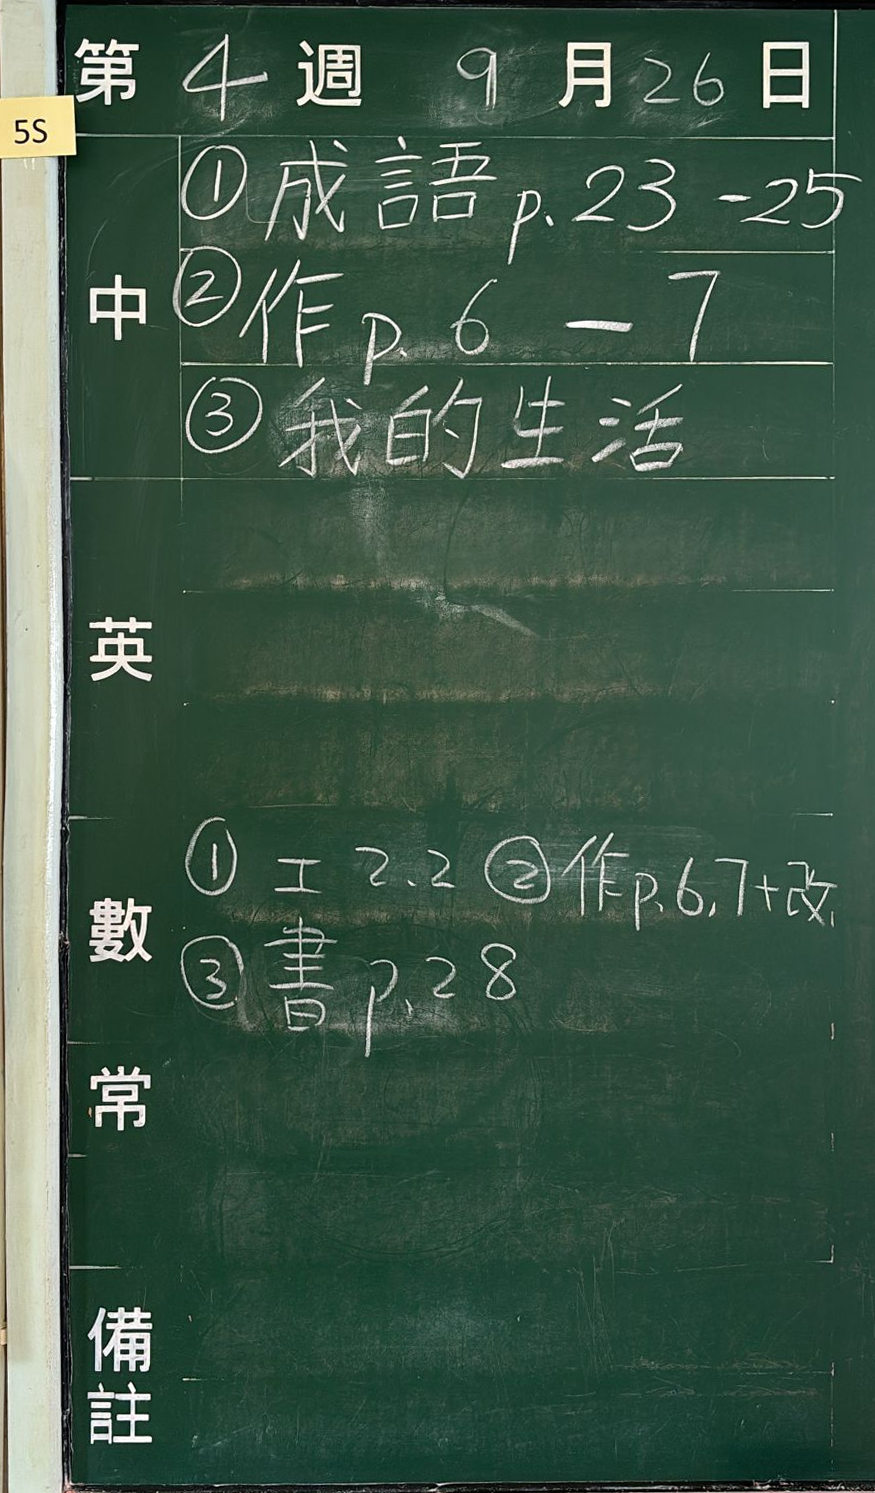 第 4 週 9 月 26 日
5S
中
① 成語 p.23-25
② 作 p.6-7
③ 我的生活
英
數
① 工 2.2 ② 作p.6,7+改
③ 書 p.28
常
備註